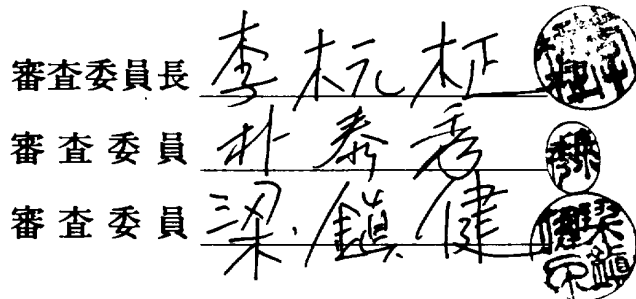 審査委員長 李杬柾
審査委員 朴泰秀
審査委員 梁鎮健